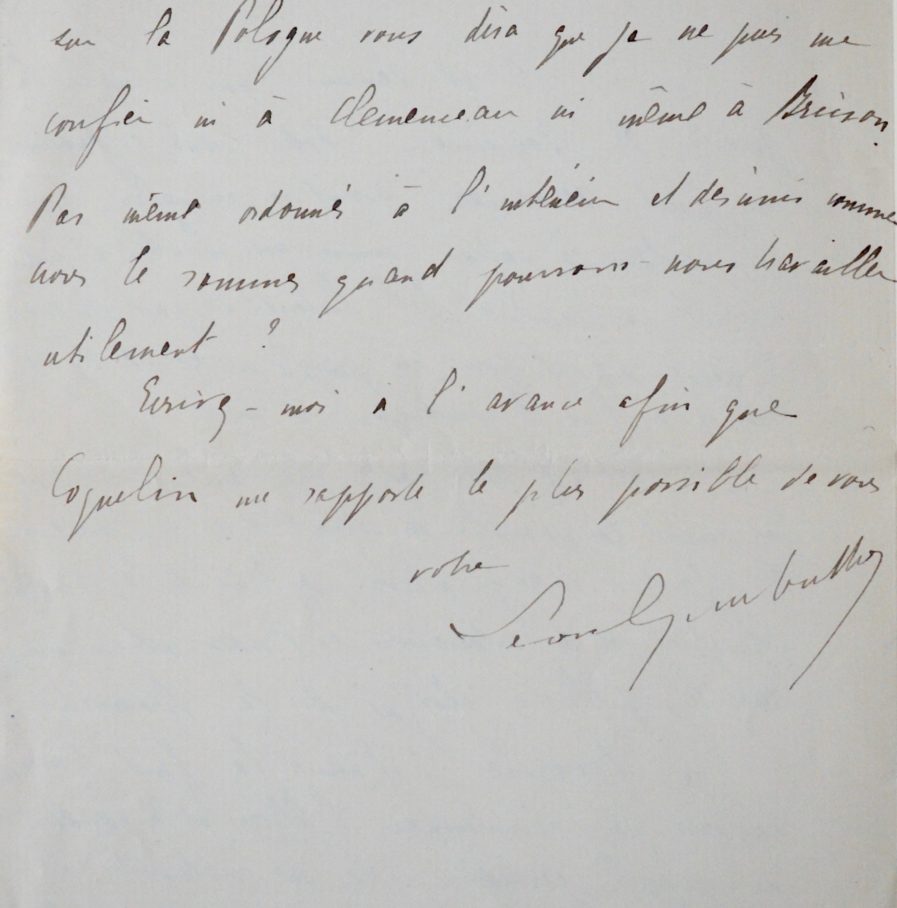 sur la Pologne vous dira que je ne puis me
confier ni à Clemenceau ni même à Brisson.
Pas même ordonnés à l'intérieur et désunis comme
nous le sommes quand pourrons-nous travailler
utilement ?
Ecrivez-moi à l'avance afin que
Coquelin me rapporte le plus possible de vous
votre
Léon Gambetta